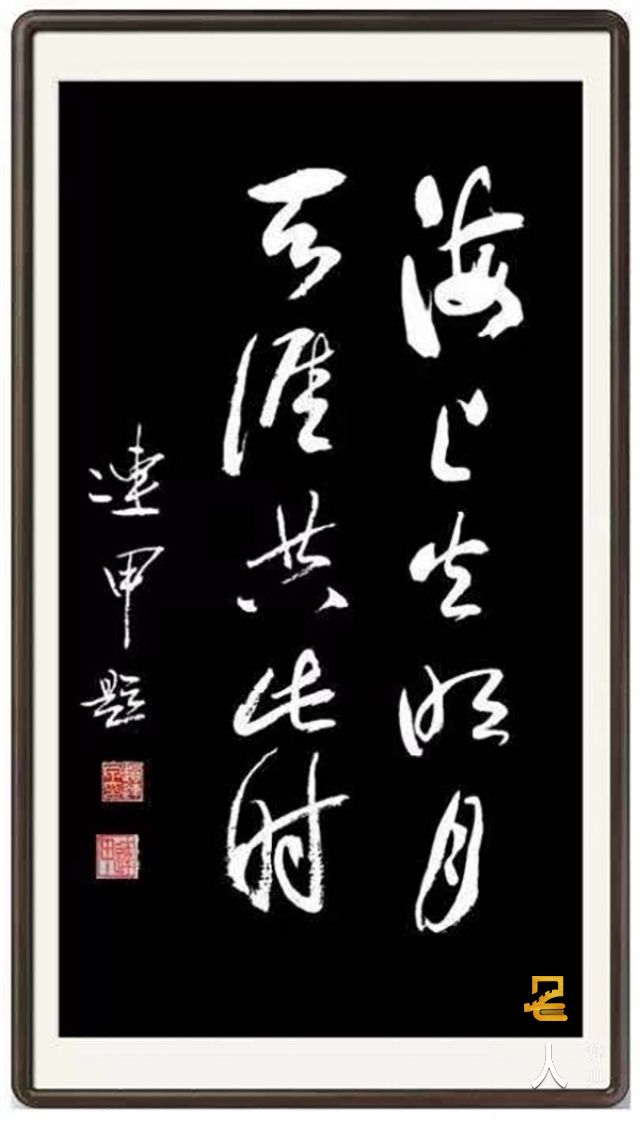 海上生明月
天涯共此时
连甲题
名人